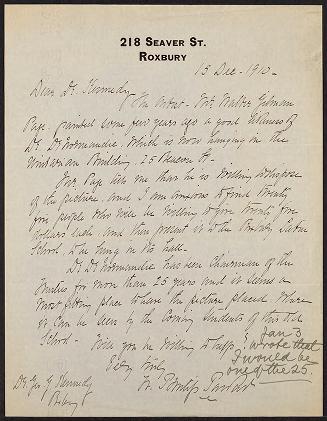 218 SEAVER ST.
ROXBURY
15 Dec - 1910 -
Dear Dr. Kennedy
The Artist - Mr. Walter Gilman
Page - painted some few years ago a good likeness of
Dr. De Normandie. Which is now hanging in the
Unitarian Building. 25 Beacon St -
Mr. Page tells me that he is willing to dispose
of the picture and I am anxious to find twenty
five people who will be willing to give twenty five
dollars each and then present it to the Roxbury Latin
School to be hung in the hall -
Dr. De Normandie has been Chairman of the
Trustees for more than 25 years and it seems a
most fitting place to have the picture placed where
it can be seen by the coming students of this old
School - Will you be willing to help?
Very truly
W.
Dr. Geo G. Kennedy
Roxbury
Jan 3
wrote that
I would be
one of the 25.